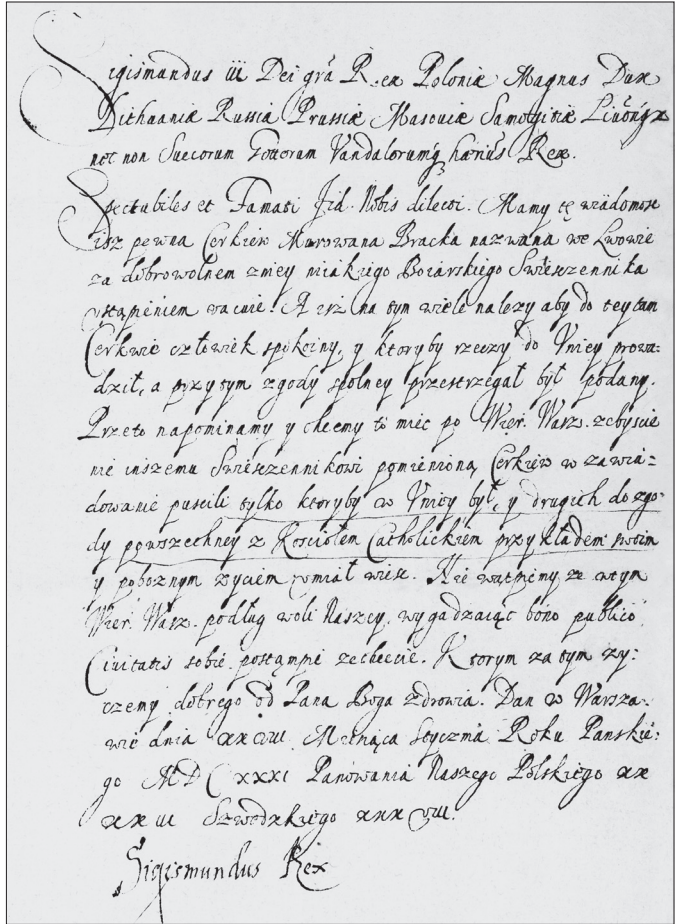 Sigismundus iii Dei grã Rex Poloniæ Magnus Dux
Lithuaniæ Russiæ Prussiæ Masouiæ Samogitiæ Liuoniæq
nec non Suecorum Gottorum Vandalorumq hærius Rex.
Spectabiles et Famati fid. Nobis dilecti. Mamy tę wiadomosc
isz pewna Cerkiew Murowana Bracka nazwana we Lwowie
za dobrowolnem zniey niakiego Boiarskiego Swieszczennika
vstąpieniem wacuie. A isz na tym wiele nalezy aby do tey tam
Cerkwie człowiek spokoiny, y ktoryby rzeczy do Vniey prowa:
dził, a przytym zgody spolney przestrzegał był podany.
Przeto napominamy y chcemy to miec po Wier. Wasz. zebyscie
nie inszemu Swieszczennikowi pomienioną Cerkiew w zawia:
dowanie puscili tylko ktoryby w Vniey był, y drugich do zgo:
dy powszechney z Kosciołem Catholickiem przykładem swoim
y poboznym zyciem umiał wiesc. Nie wątpiemy ze wtym
Wier. Wasz. podług woli Naszey, wygadzaiąc bono publico
Ciuitatis sobie postąpic zechcecie. Ktorym za tym zy:
czemy dobrego od Pana Boga zdrowia. Dan w Warsza:
wie dnia xxviii Miesiąca Stycznia Roku Panskie:
go MDCxxxi Panowania Naszego Polskiego xx
xx iii Szwedzkiego xxx viii.
Sigismundus Rex